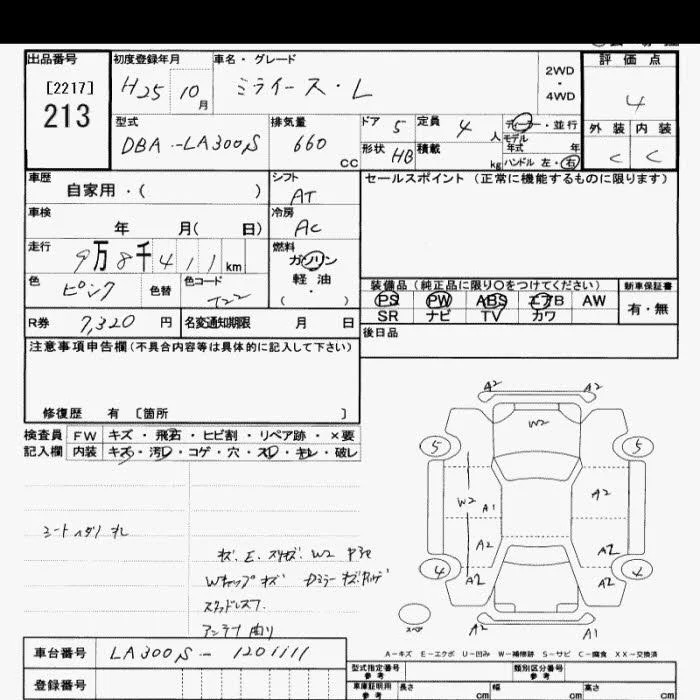 出品番号
[2217]
213
初度登録年月
H25 10月
車名・グレード
ミライース・L
2WD
・
4WD
評価点
4
外装 内装
C C
型式
DBA-LA300S
排気量
660
CC
ドア 5
定員 4 人
ディーラー・並行
モデル年式 年
形状 HB
積載 kg
ハンドル 左・右
車歴
自家用・( )
シフト
AT
セールスポイント(正常に機能するものに限ります)
車検
年 月( 日)
冷房
AC
走行
9万8千411km
燃料
ガソリン
軽油
( ・ )
色
ピンク
色替
色コード
T22
装備品(純正品に限り〇をつけてください)
PS PW ABS エアB AW
SR ナビ TV カワ
新車保証書
有・無
R券 7,320 円
名変通知期限 月 日
後日品
注意事項申告欄(不具合内容等は具体的に記入して下さい)
修復歴 有 〔箇所 〕
検査員記入欄
FW キズ・飛石・ヒビ割・リペア跡・×要
内装 キズ・汚レ・コゲ・穴・スレ・キレ・破レ
A2 A2
W2
5 5
W2 A1 A2
A2 A2
4 A2 A2 4
スペア
A2 A1
A-キズ E-エクボ U-凹み W-補修跡 S-サビ C-腐食 XX-交換済
キズ. E. スリキズ. W2
Wキャップ キズ Dミラー キズ
スタッドレス
アンテナ 曲り
車台番号 LA300S-1201111
登録番号
型式指定番号 参考
類別区分番号 参考
車庫証明用 参考
長さ cm 幅 cm 高さ cm